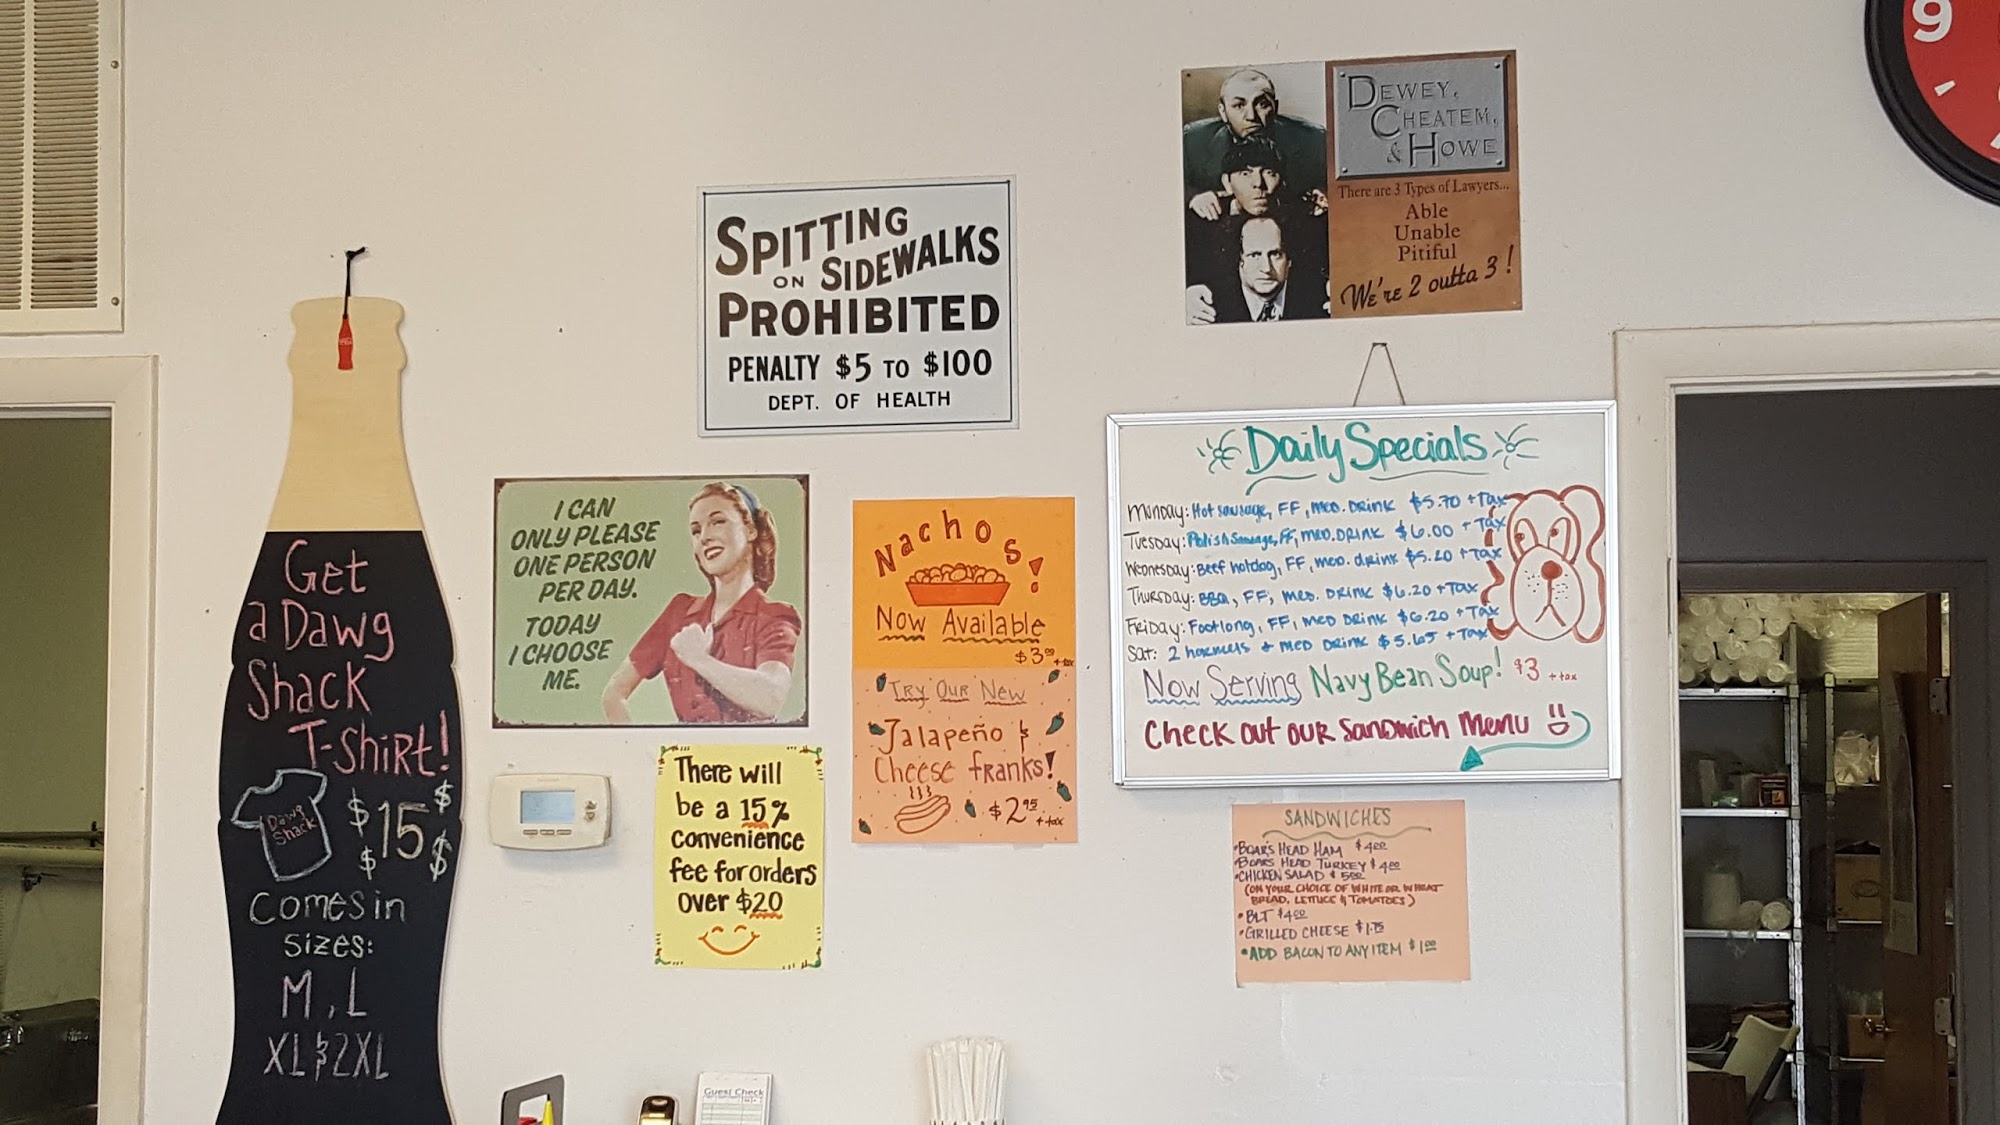 Get
a Dawg
Shack
T-Shirt!
Dawg
Shack
$ $15 $
$ $
Comes in
sizes:
M, L
XL & 2XL
SPITTING
ON SIDEWALKS
PROHIBITED
PENALTY $5 TO $100
DEPT. OF HEALTH
I CAN
ONLY PLEASE
ONE PERSON
PER DAY.
TODAY
I CHOOSE
ME.
There will
be a 15%
convenience
fee for orders
over $20
Nachos!
Now Available
$3.00 + tax
Try Our New
Jalapeño &
Cheese franks!
$2.95 + tax
DEWEY,
CHEATEM,
& HOWE
There are 3 Types of Lawyers...
Able
Unable
Pitiful
We're 2 outta 3!
9
Daily Specials
Monday: Hot sausage, FF, med. DRINK $5.70 + Tax
Tuesday: Polish Sausage, FF, med. DRINK $6.00 + Tax
Wednesday: Beef hotdog, FF, med. drink $5.20 + Tax
Thursday: BBQ, FF, med. DRINK $6.20 + Tax
Friday: Footlong, FF, med DRINK $6.20 + Tax
Sat: 2 hormels & med DRINK $5.65 + Tax
Now Serving Navy Bean Soup! $3 + tax
Check out our sandwich menu
SANDWICHES
• BOAR'S HEAD HAM $4.00
• BOARS HEAD TURKEY $4.00
• CHICKEN SALAD $5.00
(ON YOUR CHOICE OF WHITE OR WHEAT
BREAD, LETTUCE & TOMATOES)
• BLT $4.00
• GRILLED CHEESE $1.75
• ADD BACON TO ANY ITEM $1.00
Guest Check